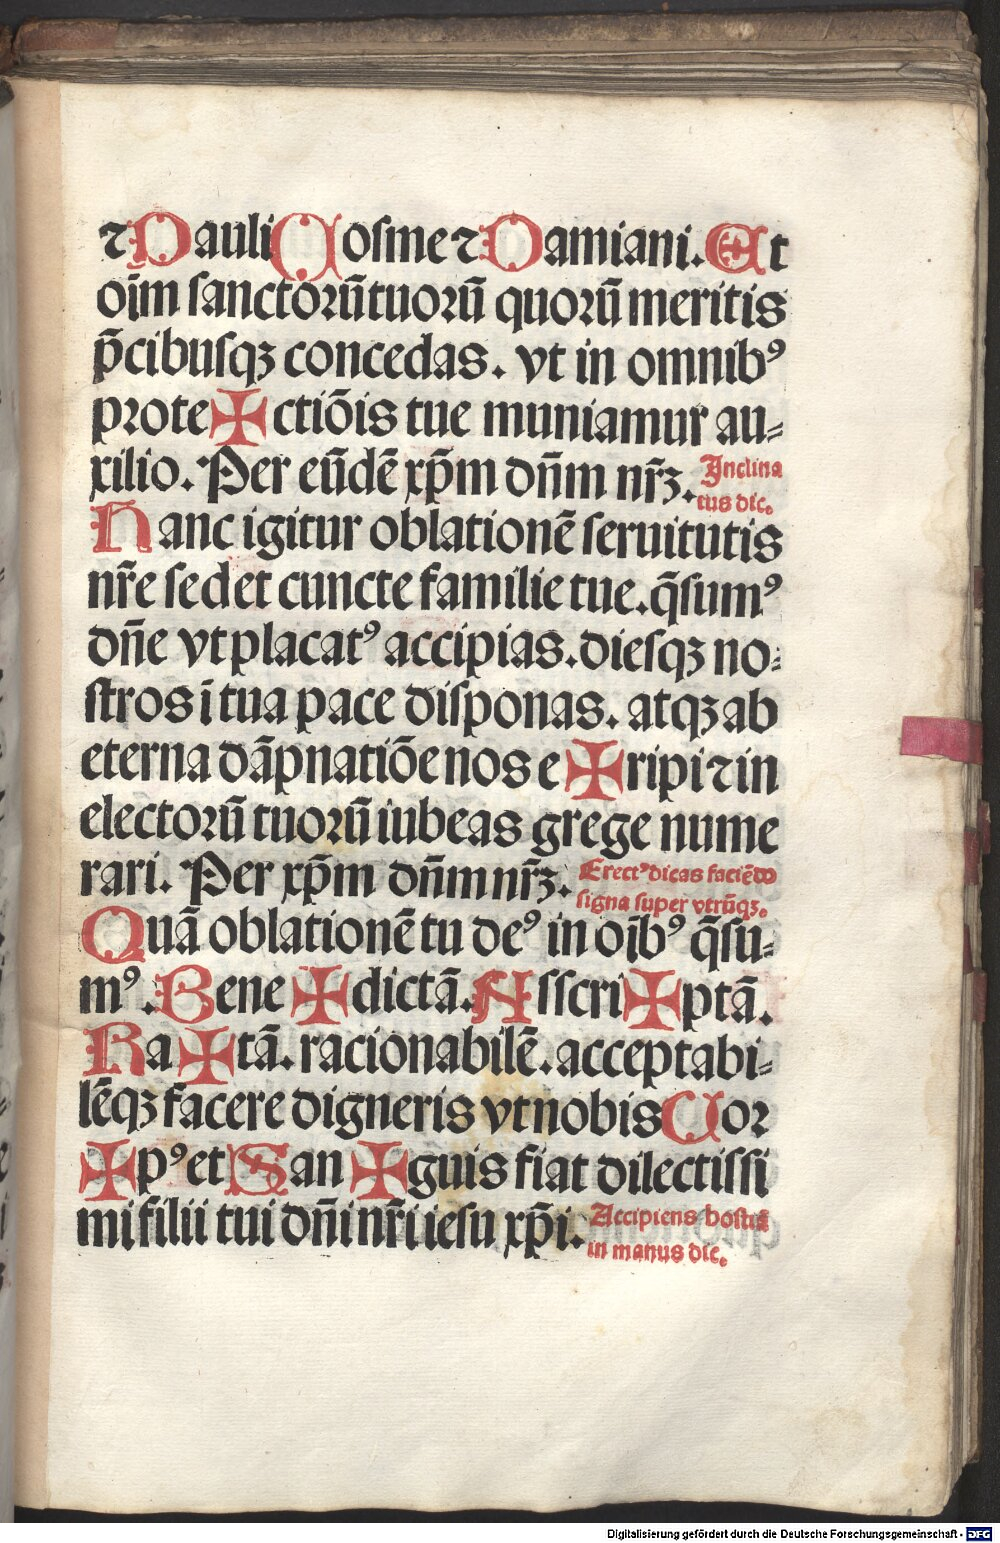 ⁊ Pauli Cosme ⁊ Damiani. Et
oīm sanctoꝝ̄ tuoꝛū quoꝛū meritis
p̄cibusqꝫ concedas. vt in omnibꝰ
prote ✠ ctiōis tue muniamur au⸗
xilio. Per eūdē xp̄m dn̄m nr̄ꝫ. Inclina
tus dic.
Hanc igitur oblationē seruitutis
nr̄e sed et cuncte familie tue. q̄sumꝰ
dn̄e vt placatꝰ accipias. diesqꝫ no⸗
stros ī tua pace disponas. atqꝫ ab
eterna dāpnatiōe nos e ✠ ripi ⁊ in
electoꝛū tuoꝛū iubeas grege nume
rari. Per xp̄m dn̄m nr̄ꝫ. Erectꝰ dicas faciēdo
signa super vtrūqꝫ.
Quā oblationē tu deꝰ in oībꝰ q̄su⸗
mꝰ. Bene ✠ dictā. Asscri ✠ ptā.
Ra ✠ tā. racionabilē. acceptabi⸗
lēqꝫ facere digneris vt nobis Cor
✠ pꝰ et San ✠ guis fiat dilectissi
mi filii tui dn̄i nr̄i iesu xp̄i. Accipiens hostiā
in manus dic.
Digitalisierung gefördert durch die Deutsche Forschungsgemeinschaft - DFG